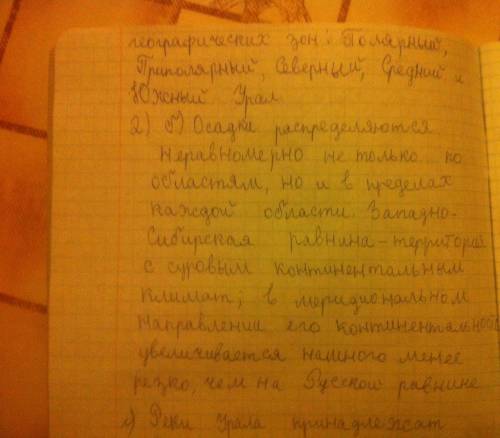 географических зон: Полярный,
Приполярный, Северный, Средний и
Южный Урал
2) б) Осадки распределяются
неравномерно не только по
областям, но и в пределах
каждой области. Западно-
Сибирская равнина - территория
с суровым континентальным
климат; в меридиональном
направлении его континентальность
увеличивается намного менее
резко, чем на Русской равнине
Реки Урала принадлежат